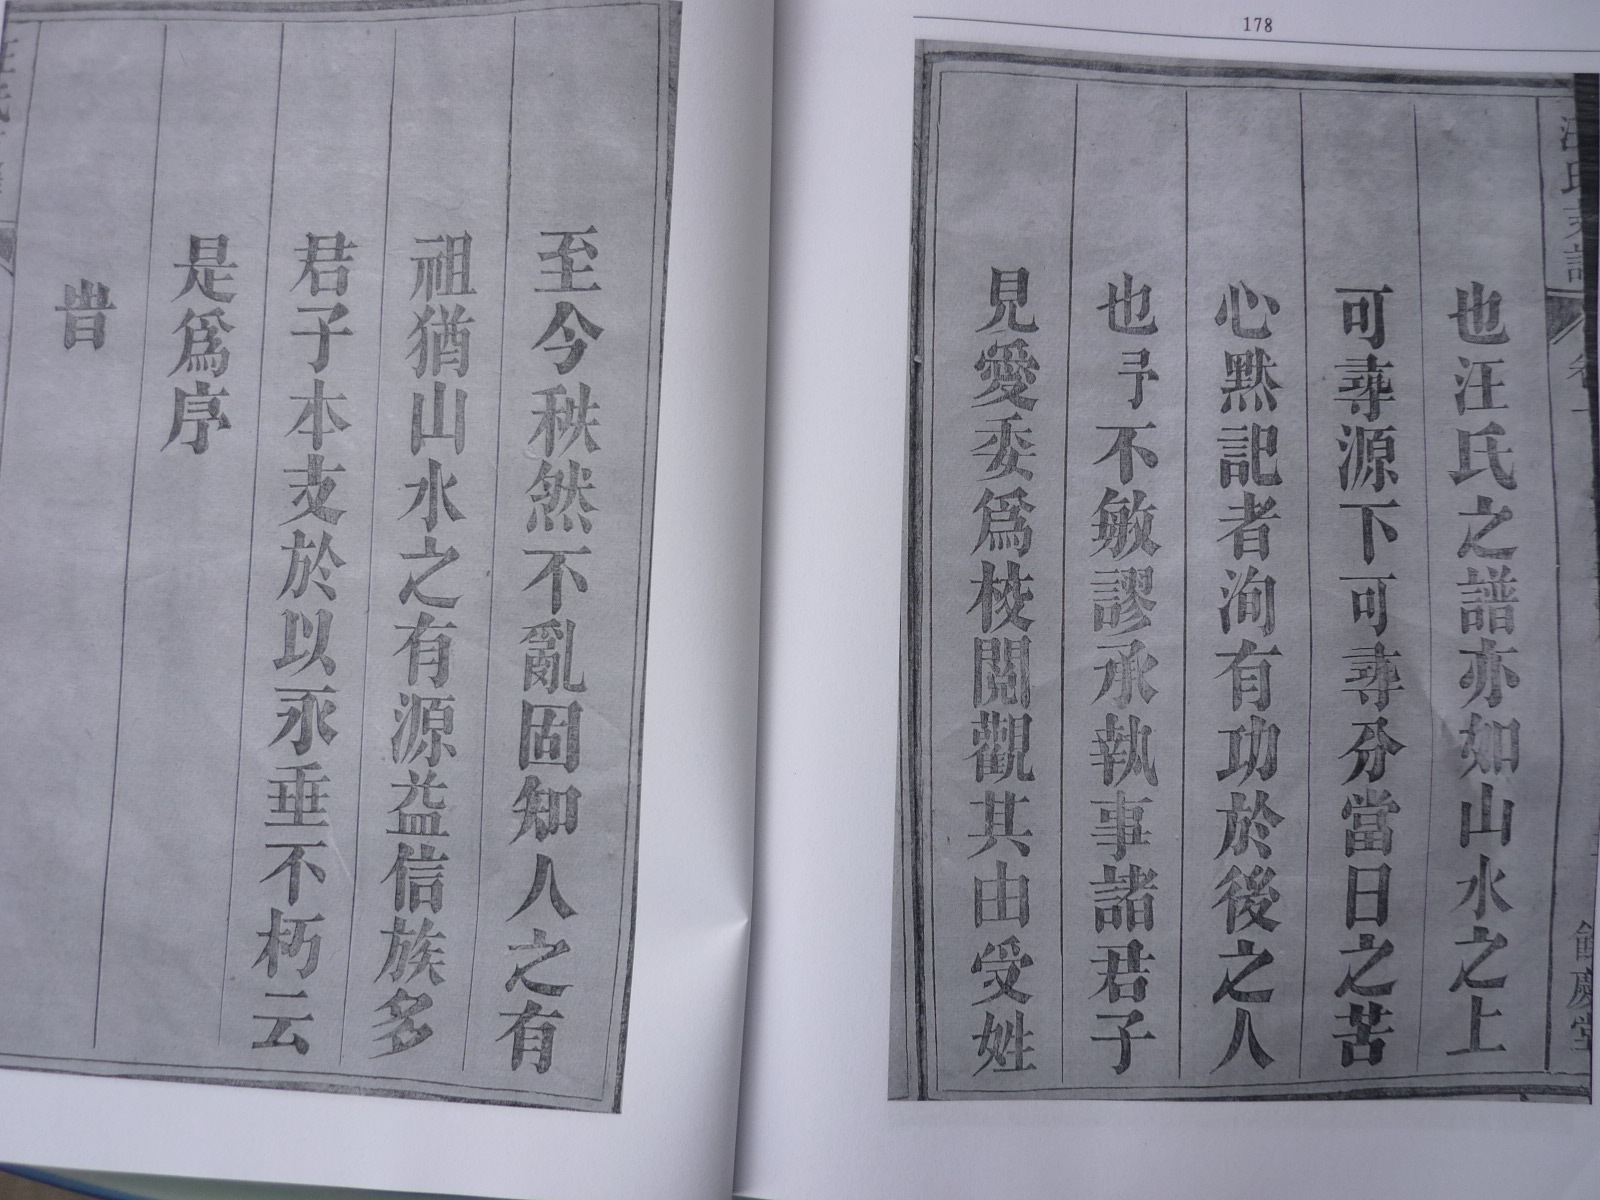 178
汪氏支譜
卷一
餘慶堂
也汪氏之譜亦如山水之上
可尋源下可尋分當日之苦
心默記者洵有功於後之人
也予不敏謬承執事諸君子
見愛委為校閱觀其由受姓
至今秩然不亂固知人之有
祖猶山水之有源益信族多
君子本支於以永垂不朽云
是為序
旹